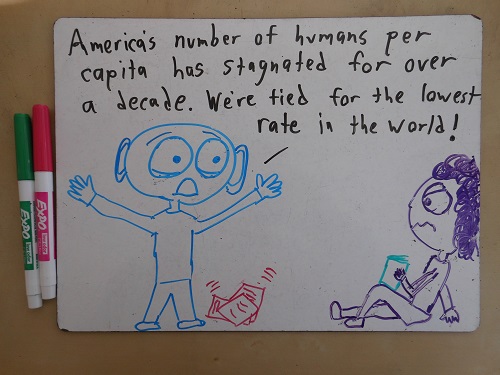 America's number of humans per
capita has stagnated for over
a decade. We're tied for the lowest
rate in the world!
EXPO
EXPO